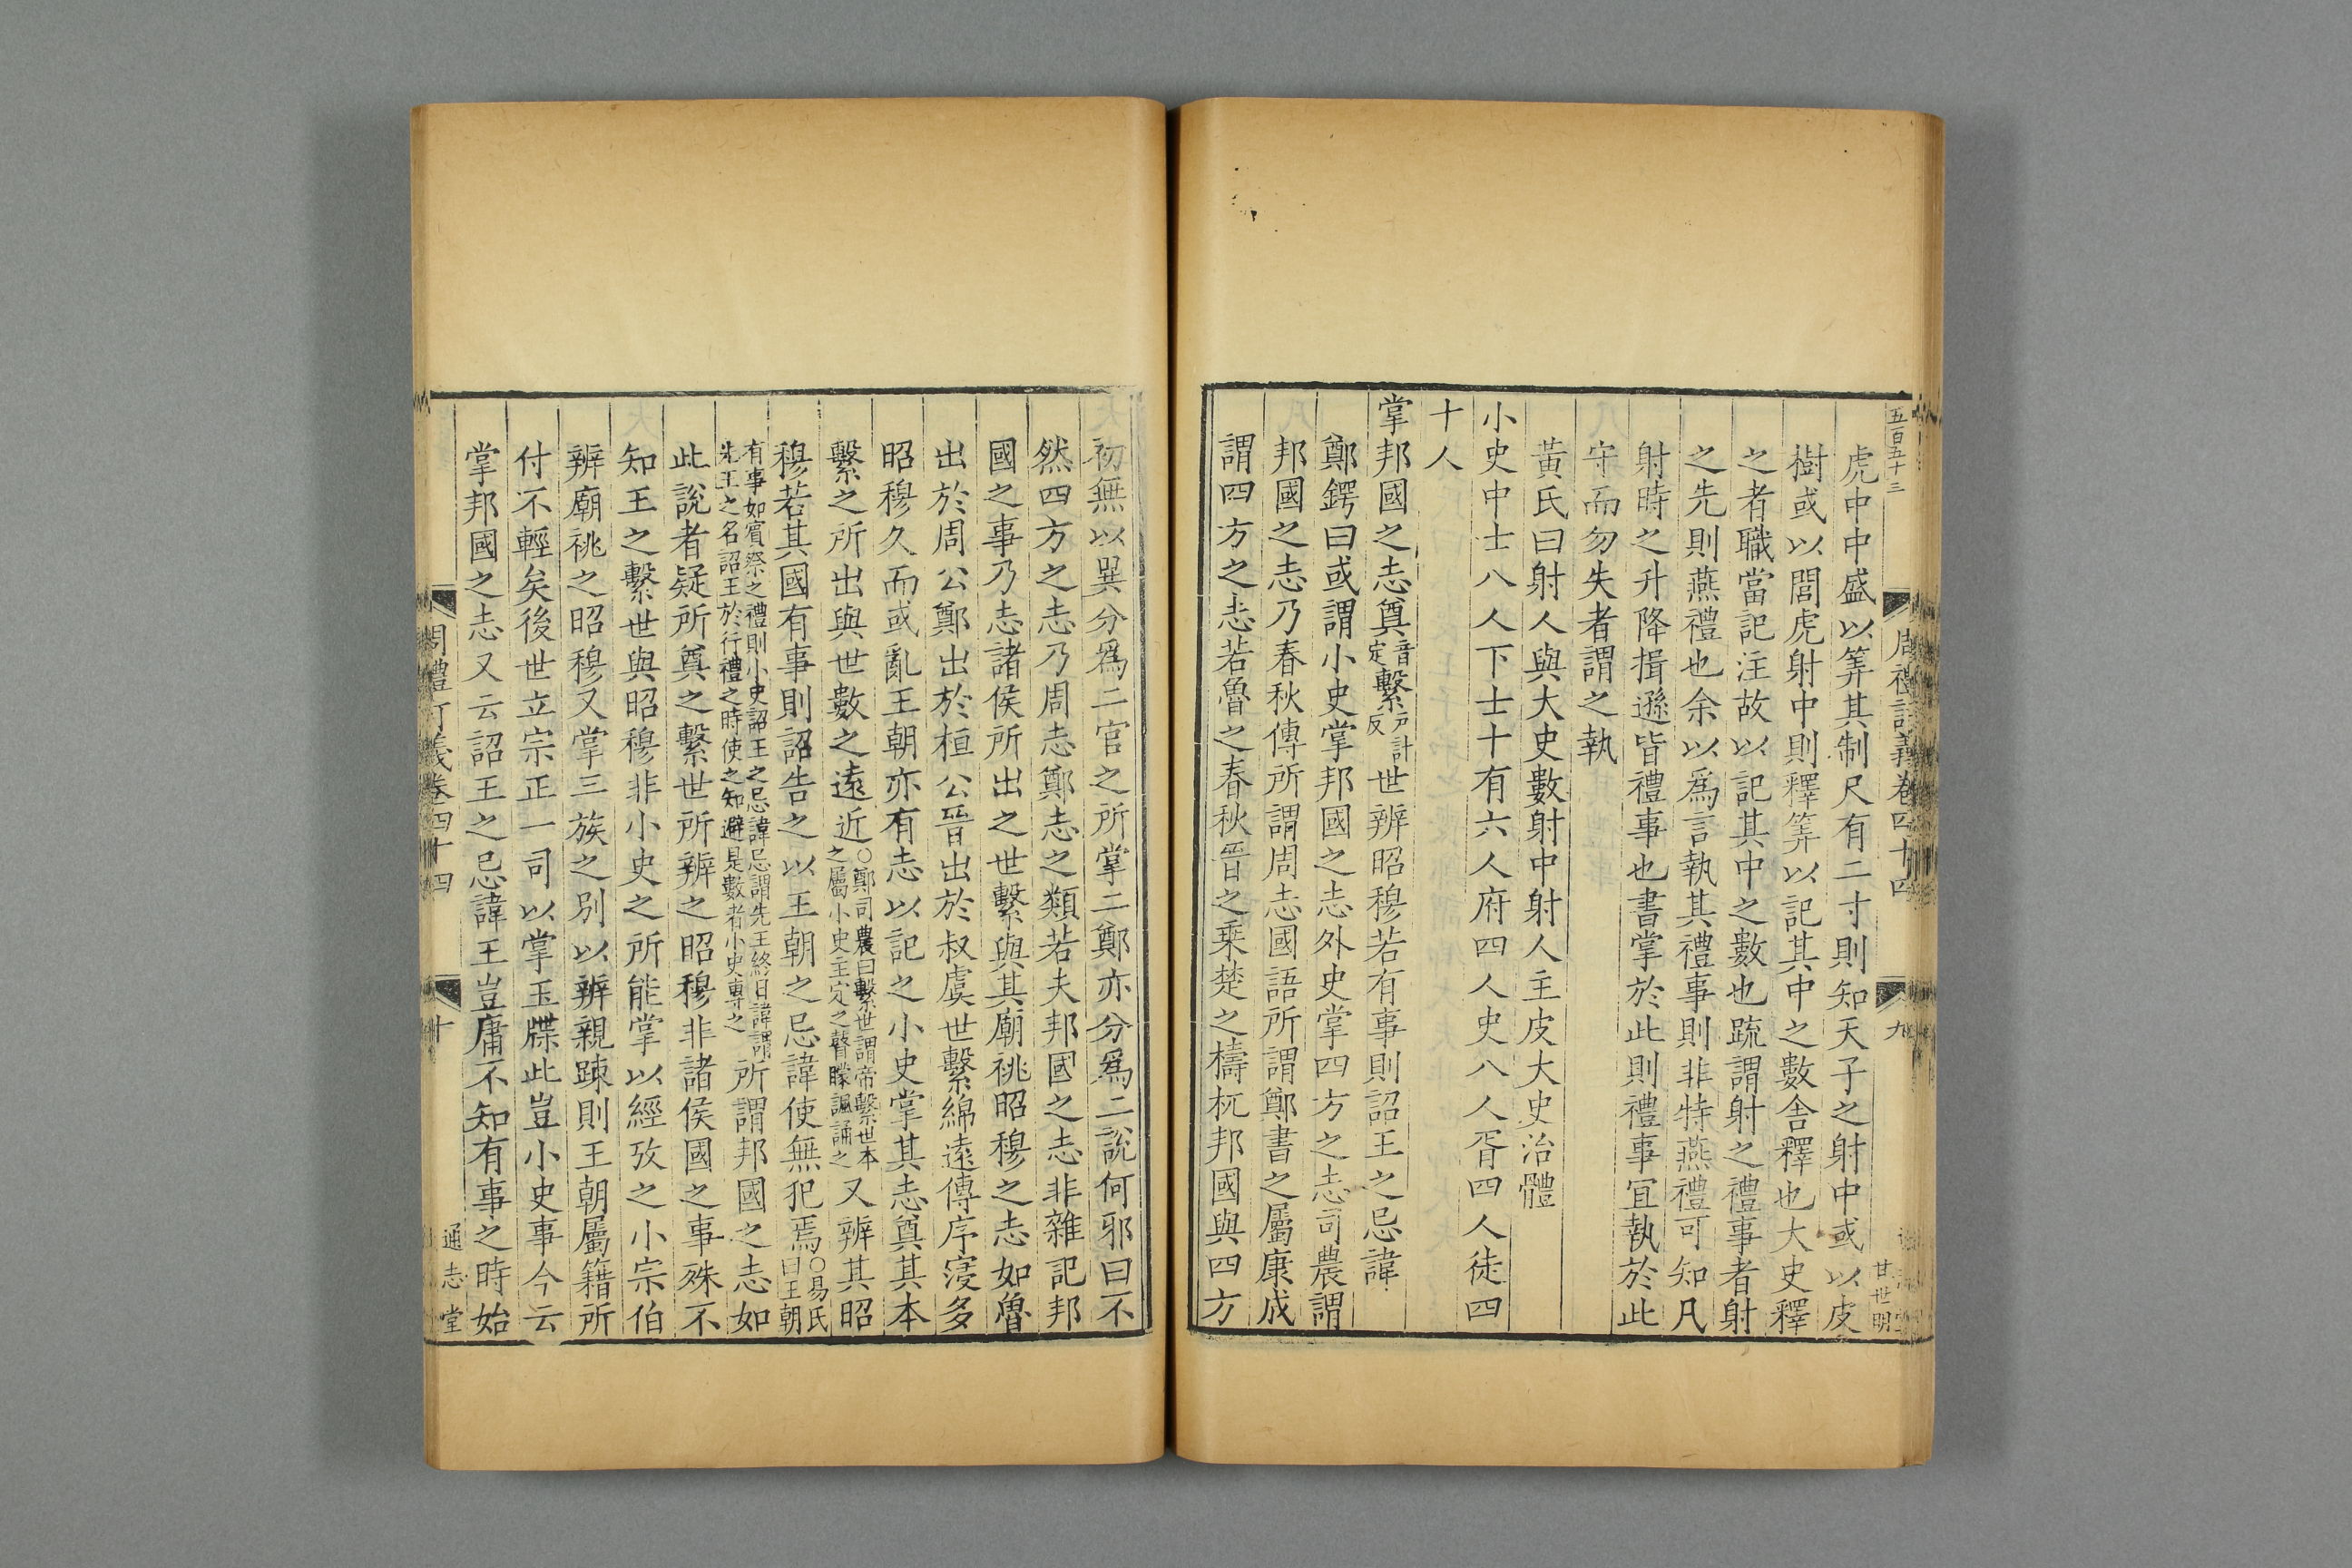 五百五十三
周禮訂義卷四十四
九
甘世明
虎中中盛以筭其制尺有二寸則知天子之射中或以皮
樹或以閭虎射中則釋筭以記其中之數舍釋也大史釋
之者職當記注故以記其中之數也䟽謂射之禮事者射
之先則燕禮也余以爲言執其禮事則非特燕禮可知凡
射時之升降揖遜皆禮事也書掌於此則禮事冝執於此
守而勿失者謂之執
黃氏曰射人與大史數射中射人主皮大史治禮
小史中士八人下士十有六人府四人史八人胥四人徒四
十人
掌邦國之志奠音定繫戸計反世辨昭穆若有事則詔王之忌諱
鄭鍔曰或謂小史掌邦國之志外史掌四方之志司農謂
邦國之志乃春秋傳所謂周志國語所謂鄭書之屬康成
謂四方之志若魯之春秋晉之乗楚之檮杌邦國與四方
初無以異分爲二官之所掌二鄭亦分爲二說何邪曰不
然四方之志乃周志鄭志之類若夫邦國之志非雜記邦
國之事乃志諸侯所出之世繫與其廟祧昭穆之志如魯
出於周公鄭出於桓公晉出於叔虞世繫綿遠傳序寖多
昭穆久而或亂王朝亦有志以記之小史掌其志奠其本
繫之所出與世數之遠近○鄭司農曰繫世謂帝繫世本之屬小史主定之瞽矇諷誦之又辨其昭
穆若其國有事則詔告之以王朝之忌諱使無犯焉○易氏曰王朝
有事如賓祭之禮則小史詔王之忌諱忌謂先王終日諱謂先王之名詔王於行禮之時使之知避是數者小史專之所謂邦國之志如
此說者疑所奠之繫世所辨之昭穆非諸侯國之事殊不
知王之繫世與昭穆非小史之所能掌以經攷之小宗伯
辨廟祧之昭穆又掌三族之別以辨親踈則王朝屬籍所
付不輕矣後世立宗正一司以掌玉牒此豈小史事今云
掌邦國之志又云詔王之忌諱王豈庸不知有事之時始
周禮訂義卷四十四
十
通志堂